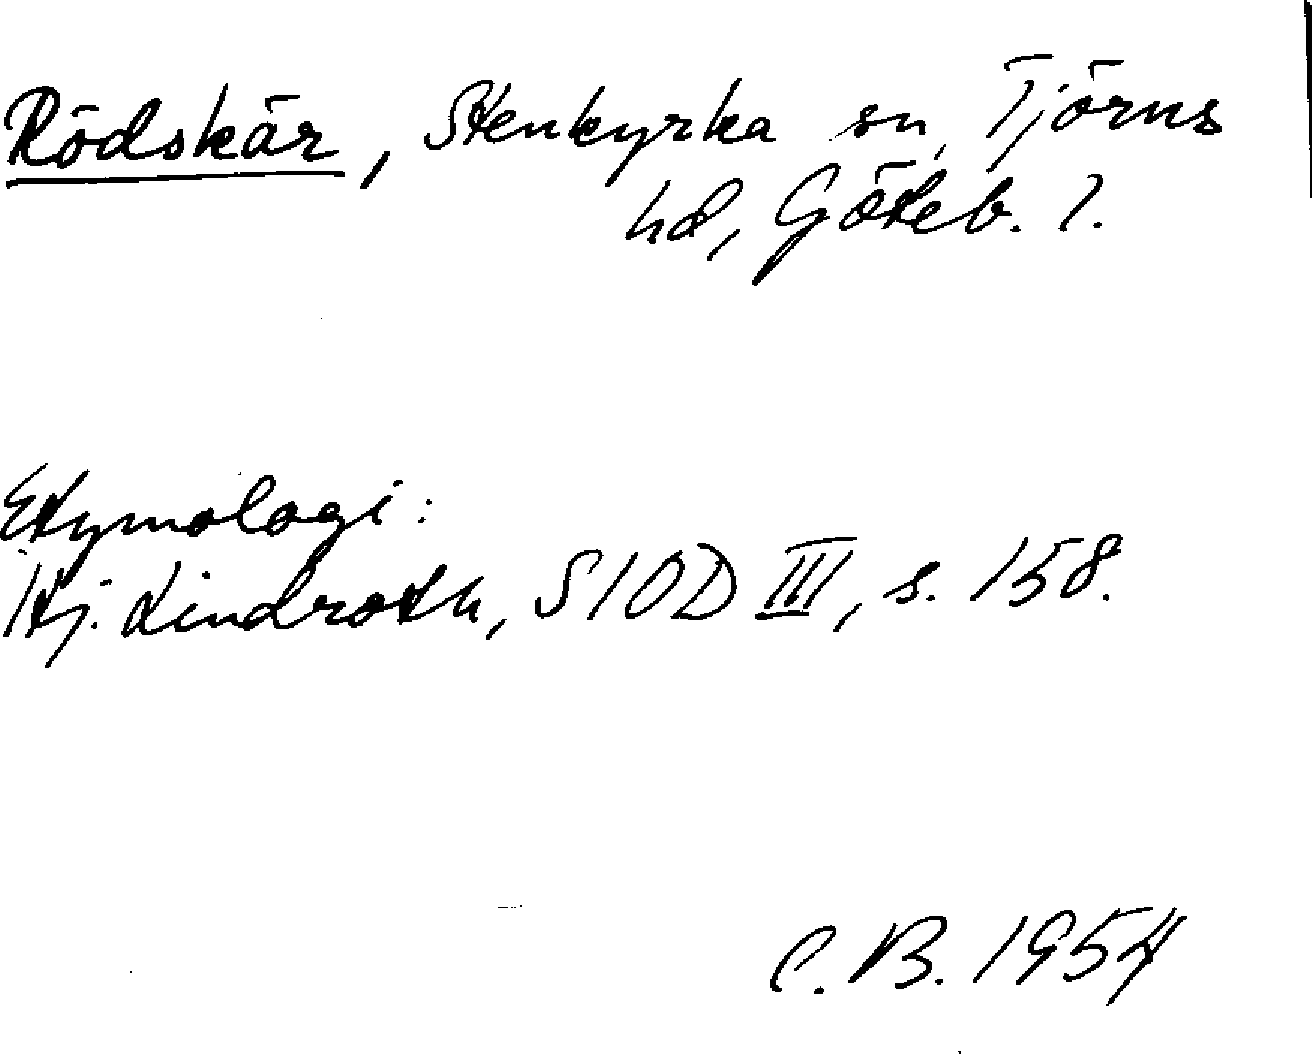 Rödskär, Stenkyrka sn, Tjörns
hd, Göteb. l.
Etymologi:
Hj. Lindroth, SIOD III, s. 158.
C. B. 1954